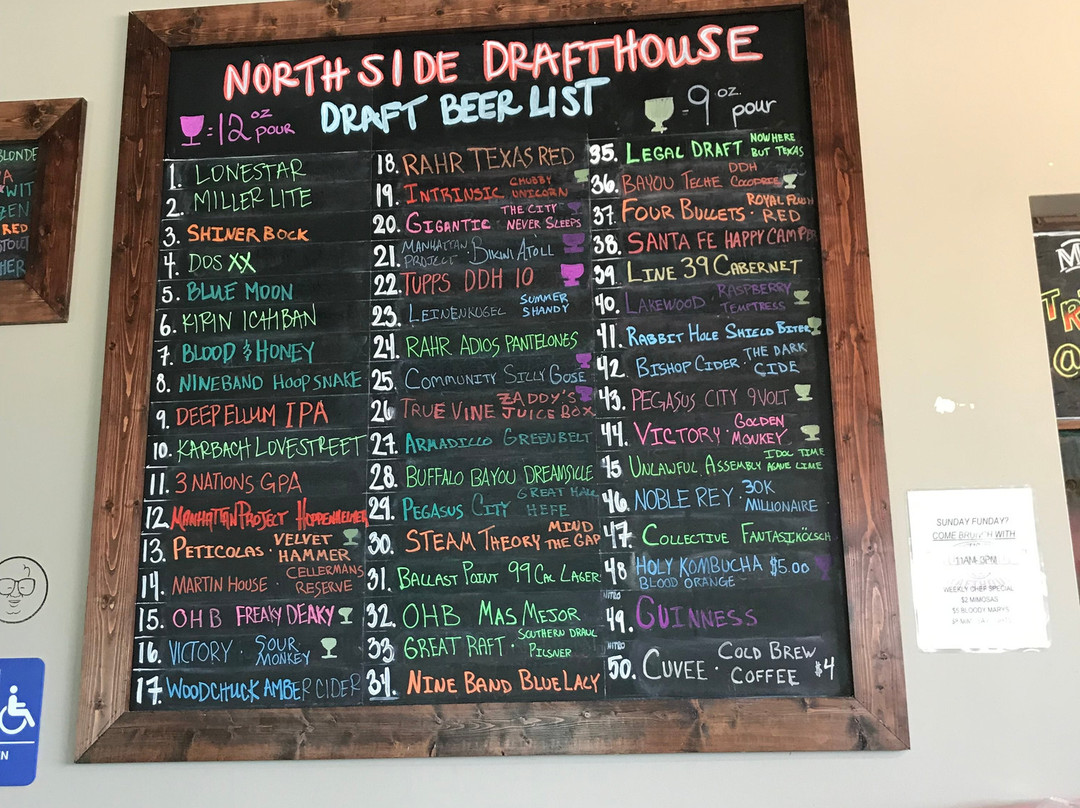 NORTH SIDE DRAFTHOUSE
DRAFT BEER LIST
=12 oz pour
=9 oz. pour
1. LONESTAR
2. MILLER LITE
3. SHINER BOCK
4. DOS XX
5. BLUE MOON
6. KIRIN ICHIBAN
7. BLOOD & HONEY
8. NINEBAND HOOP SNAKE
9. DEEP ELLUM IPA
10. KARBACH LOVESTREET
11. 3 NATIONS GPA
12. MANHATTAN PROJECT HOPPENHEIMER
13. PETICOLAS · VELVET HAMMER
14. MARTIN HOUSE · CELLERMANS RESERVE
15. OHB FREAKY DEAKY
16. VICTORY · SOUR MONKEY
17. WOODCHUCK AMBER CIDER
18. RAHR TEXAS RED
19. INTRINSIC CHUBBY UNICORN
20. GIGANTIC THE CITY NEVER SLEEPS
21. MANHATTAN PROJECT · BIKINI ATOLL
22. TUPPS DDH 10
23. LEINENKUGEL SUMMER SHANDY
24. RAHR ADIOS PANTELONES
25. COMMUNITY SILLY GOSE
26 TRUE VINE ZADDY'S JUICE BOX
27. ARMADILLO GREENBELT
28. BUFFALO BAYOU DREAMSICLE
29. PEGASUS CITY GREAT HALL HEFE
30. STEAM THEORY MIND THE GAP
31. BALLAST POINT 99 CAL LAGER
32. OHB MAS MEJOR
33. GREAT RAFT · SOUTHERN DRAWL PILSNER
34. NINE BAND BLUE LACY
35. LEGAL DRAFT NOWHERE BUT TEXAS
36. BAYOU TECHE DDH COCODRIE
37. FOUR BULLETS · ROYAL FLUSH RED
38. SANTA FE HAPPY CAMPER
39. LINE 39 CABERNET
40. LAKEWOOD · RASPBERRY TEMPTRESS
41. RABBIT HOLE SHIELD BITER
42. BISHOP CIDER · THE DARK CIDE
43. PEGASUS CITY 9VOLT
44. VICTORY · GOLDEN MONKEY
45 UNLAWFUL ASSEMBLY IDOL TIME AGAVE LIME
46. NOBLE REY · 30K MILLIONAIRE
47. COLLECTIVE FANTASIKÖLSCH
48 HOLY KOMBUCHA $5.00
BLOOD ORANGE
NITRO
49. GUINNESS
NITRO
50. CUVEE · COLD BREW COFFEE $4
BLONDE
WIT
RED
STOUT
SUNDAY FUNDAY?
COME BRUNCH WITH
WEEKLY CHEF SPECIAL
$2 MIMOSAS
$5 BLOODY MARYS